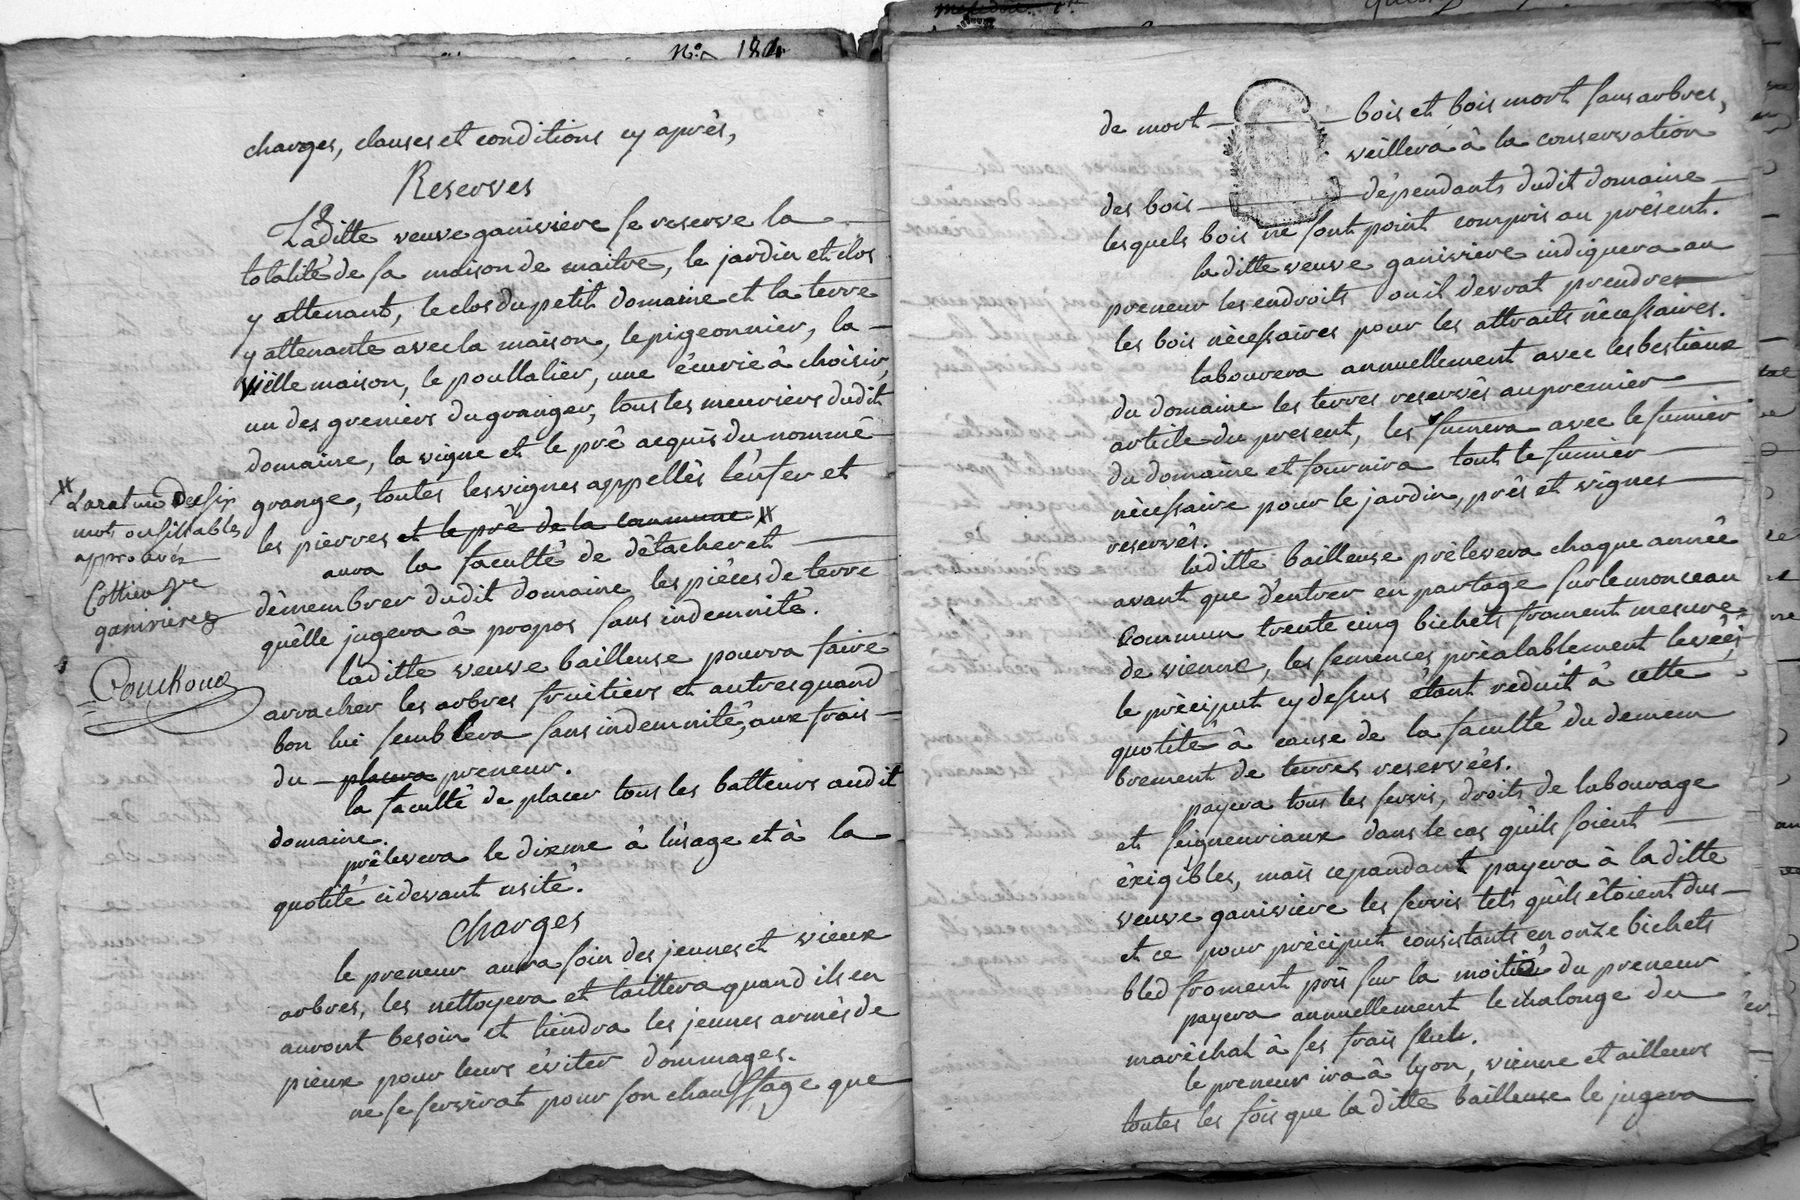 N° 184
charges, clauses et conditions cy après,
Reserves
Laditte veuve ganiviere se reserve la
totalité de sa maison de maitre, le jardin et clos
y attenant, le clos du petit domaine et la terre
y attenante avec la maison, le pigeonnier, la
vielle maison, le poullalier, une écurie â choisir,
un des greniers du granger, tous les meuriers dudit
domaine, la vigne et le prê acquis du nommé
grange, toutes les vignes appellés l'enfer et
les pierres et le prê de la commune X
aura la faculté de dêtacher et
dêmembrer dudit domaine les piéces de terre
quêlle jugera â propos sans indemnité.
laditte veuve bailleuse pourra faire
arracher les arbres fruitiers et autres quand
bon lui semblera sans indemnité, aux frais
du preneur.
la faculté de placer tous les batteurs audit
domaine.
prêlevera le dixme â l'usage et à la
quotité cidevant usité.
Charges
le preneur aura soin des jeunes et vieux
arbres, les nettoyera et taillera quand ils en
auront besoin et tiendra les jeunes armés de
pieux pour leurs éviter dommages.
ne se servirat pour son chauffage que
X
La rature de six
mots ou sillables
approuvés
Cottier ve
ganiviere
de mort bois et bois mort sans arbres,
veillera â la conservation
des bois dépendants dudit domaine
lesquels bois ne sont point compris au présent.
laditte veuve ganiviere indiquera au
preneur les endroits ou il devrat prendre
les bois nécessaires pour les attraits nécessaires.
labourera annuellement avec les bestiaux
du domaine les terres reservés au premier
article du present, les fumera avec le fumier
du domaine et fournira tout le fumier
nécessaire pour le jardin, prés et vignes
reservés.
laditte bailleuse prélevera chaque année
avant que d'entrer en partage sur le monceau
Commun trente cinq bichets froment mesure
de vienne, les semences préalablement levées,
le préciput cy dessus étant reduit â cette
quotité â cause de la faculté du demem
brement de terres reservées.
payera tous les servis, droits de labourage
et seigneuriaux dans le cas qu'ils soient
éxigibles, mais cepandant payera à la ditte
veuve ganiviere les servis tels qu'ils étoient dus
et ce pour préciput consistants en onze bichets
bled froment pris sur la moitié du preneur
payera annuellement le malonge du
maréchal â ses frais seuls.
le preneur ira â lyon, vienne et ailleurs
toutes les fois que la ditte bailleuse le jugera